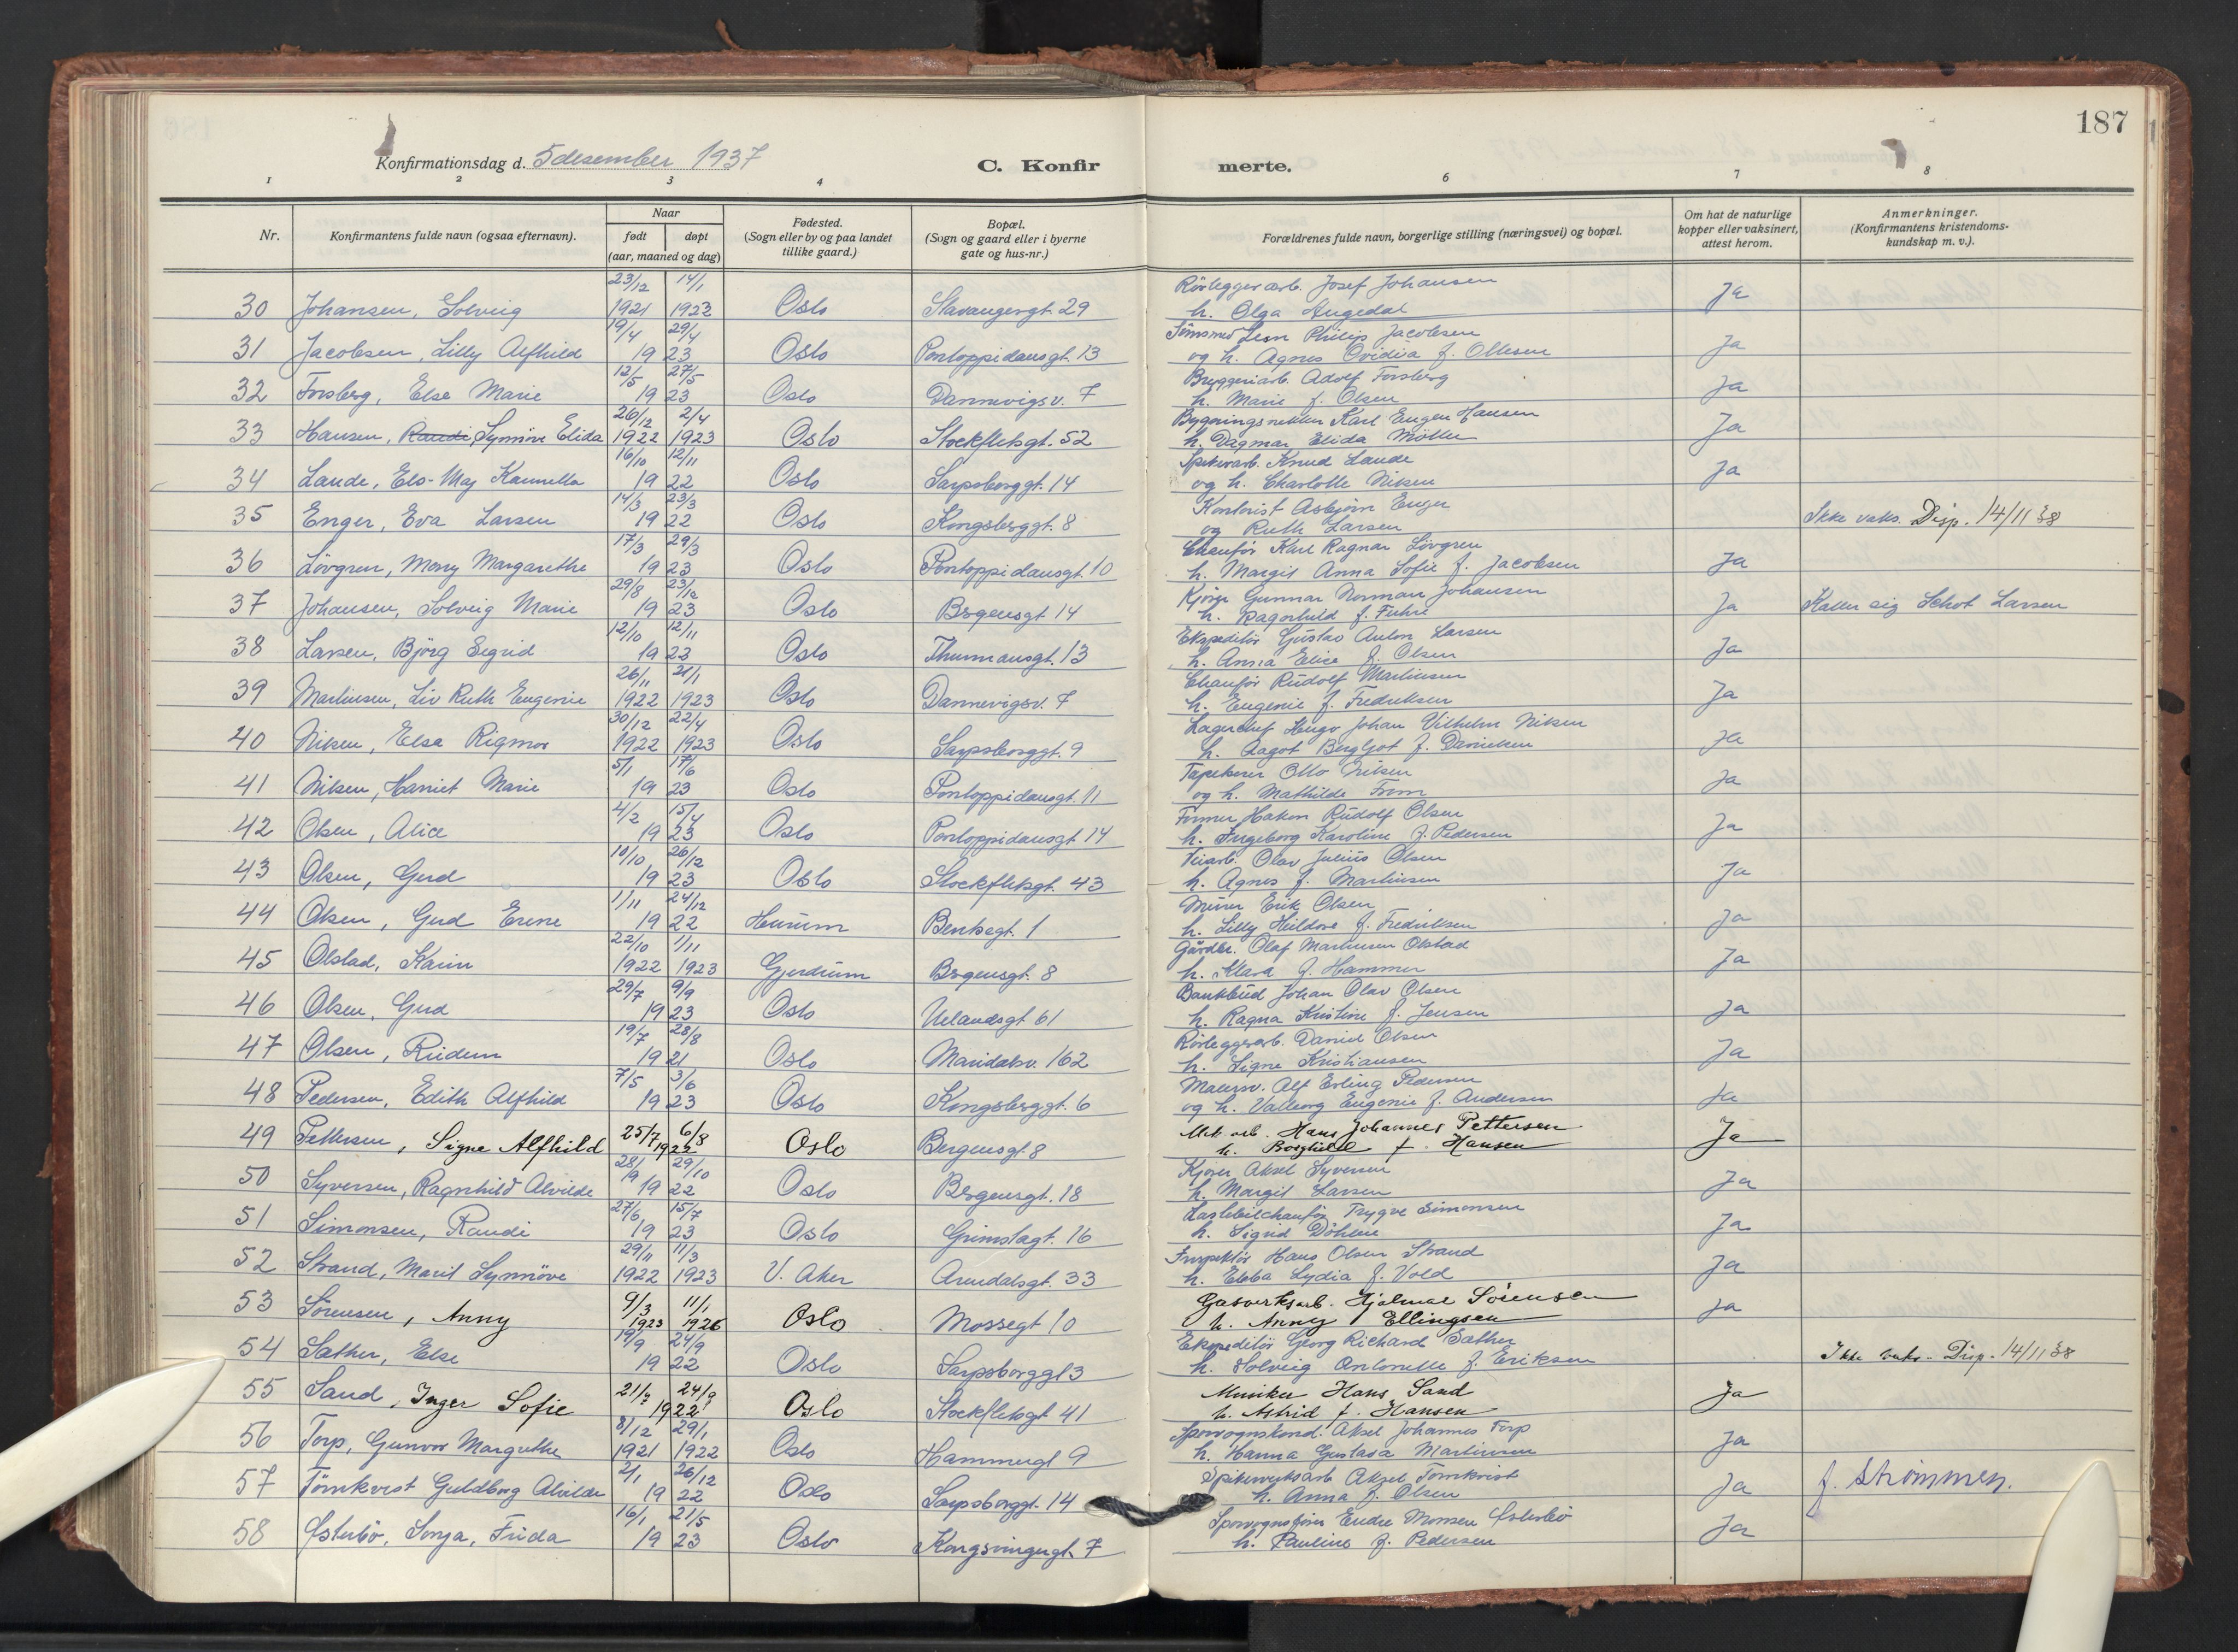 187
Konfirmationsdag d. 5 desember 1937
C. Konfirmerte.
1 2 3 4 6 7 8
Nr. Konfirmantens fulde navn (ogsaa efternavn). Naar født døpt (aar, maaned og dag) Fødested. (Sogn eller by og paa landet tillike gaard.) Bopæl. (Sogn og gaard eller i byerne gate og hus-nr.) Forældrenes fulde navn, borgerlige stilling (næringsvei) og bopæl. Om hat de naturlige kopper eller vaksinert, attest herom. Anmerkninger. (Konfirmantens kristendomskundskap m. v.).
30 Johansen, Solveig 23/12 1921 14/1 1923 Oslo Stavangergt. 29 Rörleggerarb. Josef Johansen h. Olga Augedal Ja
31 Jacobsen, Lilly Alfhild 19/4 29/4 1923 Oslo Pontoppidansgt. 13 Philip Jacobsen og h. Agnes Ovidia f. Ottesen Ja
32 Forsberg, Else Marie 12/5 27/5 1923 Oslo Dannevigsv. 7 Bryggeriarb. Adolf Forsberg h. Marie f. Olsen Ja
33 Hansen, Randi, Synnöve Elida 26/12 1922 2/4 1923 Oslo Stockfletsgt. 52 Bygningsnekker Karl Eugen Hansen h. Dagmar Elida Möller Ja
34 Lande, Els-May Kamella 16/10 12/11 1922 Oslo Sarpsborggt. 14 Spikerarb. Knud Lande og h. Charlotte Nilsen Ja
35 Enger, Eva Larsen 14/3 23/3 1922 Oslo Kongsberggt. 8 Kontorist Asbjörn Enger og Ruth Larsen Ikke vaks. Disp. 14/11 38
36 Lövgren, Mary Margarethe 17/3 29/3 1923 Oslo Pontoppidansgt. 10 Chauför Karl Ragnar Lövgren h. Margit Anna Sofie f. Jacobsen Ja
37 Johansen, Solveig Marie 29/8 23/12 1923 Oslo Bergensgt 14 Kjörer Gunnar Norman Johansen h. Ragnhild f. Fuhre Ja Kaller sig Schot Larsen
38 Larsen, Björg Sigrid 12/10 12/11 1923 Oslo Thurmannsgt. 13 Ekspeditör Gustav Anton Larsen h. Anna Elise f. Olsen Ja
39 Martinsen, Liv Ruth Eugenie 26/11 1922 21/1 1923 Oslo Dannevigsv. 7 Chauför Rudolf Martinsen h. Eugenie f. Fredriksen Ja
40 Nilsen, Elsa Rigmor 30/12 1922 22/4 1923 Oslo Sarpsborggt. 9 Lagerchef Hugo Johan Vilhelm Nilsen h. Aagot Bergljot f. Danielsen Ja
41 Nilsen, Harriet Marie 5/1 17/6 1923 Oslo Pontoppidansgt. 11 Tapetserer Otto Nilsen og h. Mathilde From Ja
42 Olsen, Alice 4/2 15/4 1923 Oslo Pontoppidansgt 14 Former Hakon Rudolf Olsen h. Ingeborg Karoline f. Pedersen Ja
43 Olsen, Gerd 10/10 26/12 1923 Oslo Stockfletsgt. 43 Veiarb. Olav Julius Olsen h. Agnes f. Martinsen Ja
44 Olsen, Gerd Erene 1/11 24/12 1922 Hurum Bentsegt. 1 Murer Erik Olsen h. Lilly Heildore f. Fredriksen Ja
45 Olstad, Karin 22/10 1922 1/11 1923 Gjerdrum Bergensgt. 8 Gårdbr. Olaf Martinsen Olstad h. Klara f. Hammer Ja
46 Olsen, Gerd 29/7 9/9 1923 Oslo Uelandsgt 61 Bankbud Johan Olav Olsen h. Ragna Kristine f. Jensen Ja
47 Olsen, Reidun 19/7 28/8 1921 Oslo Maridalsv. 162 Rörleggerarb. Daniel Olsen h. Signe Kristiansen Ja
48 Pedersen, Edith Alfhild 7/5 3/6 1923 Oslo Kongsberggt. 6 Malersv. Alf Erling Pedersen og h. Valborg Eugenie f. Andersen Ja
49 Pettersen, Signe Alfhild 25/7 6/8 1922 Oslo Bergensgt. 8 Met. arb. Hans Johannes Pettersen h. Borghild f. Hansen Ja
50 Syversen, Ragnhild Alvilde 28/9 29/10 1922 Oslo Bergensgt. 18 Kjører Aksel Syversen h. Margit Larsen Ja
51 Simonsen, Randi 27/6 15/7 1923 Oslo Grimstagt. 16 Lastebilchauför Trygve Simonsen h. Sigrid Döhlen Ja
52 Strand, Marit Synnöve 29/11 1922 11/3 1923 V. Aker Arendalsgt. 33 Inspektör Hans Olsen Strand h. Ebba Lydia f. Vold Ja
53 Sörensen, Anny 9/3 1923 11/1 1926 Oslo Mossegt 10 Gasverksarb. Hjalmar Sörensen h. Anny Ellingsen Ja
54 Sæther, Else 19/9 24/9 1922 Oslo Sarpsborggt 3 Ekspeditör Georg Richard Sæther h. Solveig Antonette f. Eriksen Ikke vaks. Disp. 14/11 38
55 Sand, Inger Sofie 21/7 24/9 1922 Oslo Stockfletsgt 41 Musiker Hans Sand h. Astrid f. Hansen Ja
56 Torp, Gunvor Margrethe 8/12 1921 29/1 1922 Oslo Hammergt 9 Sporvognskond. Aksel Johannes Torp h. Hanna Gustava Martinsen Ja
57 Törnkvist Guldborg Alvilde 2/1 26/12 1922 Oslo Sarpsborggt. 14 Spikerverksarb Aksel Törnkvist h. Anna f. Olsen Ja f. Strömmen.
58 Österbö, Sonja, Frida 16/1 21/5 1923 Oslo Kongsvingergt. 7 Sporvognsfører Endre Monsen Österbö h. Pauline f. Pedersen Ja